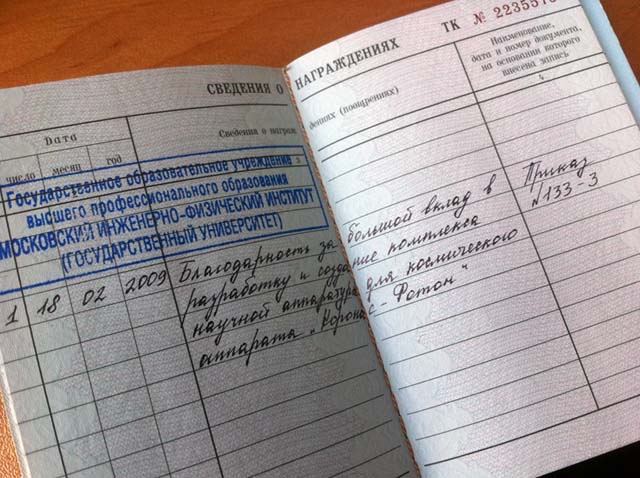 СВЕДЕНИЯ О НАГРАЖДЕНИЯХ
ТК № 2235575
Дата
Сведения о награждениях (поощрениях)
Наименование,
дата и номер документа,
на основании которого
внесена запись
число месяц год
3
4
Государственное образовательное учреждение
высшего профессионального образования
МОСКОВСКИЙ ИНЖЕНЕРНО-ФИЗИЧЕСКИЙ ИНСТИТУТ
(ГОСУДАРСТВЕННЫЙ УНИВЕРСИТЕТ)
1 18 02 2009 Благодарность за большой вклад в Приказ
разработку и создание комплекса №133-3
научной аппаратуры для космического
аппарата „Коронас-Фотон"